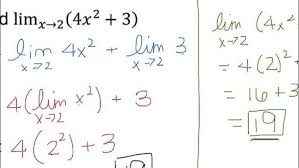 d lim_{x→2}(4x² + 3)
lim_{x→2} 4x² + lim_{x→2} 3
4(lim_{x→2} x²) + 3
4(2²) + 3
lim_{x→2} (4x²
= 4(2)²
= 16 + 3
= 19